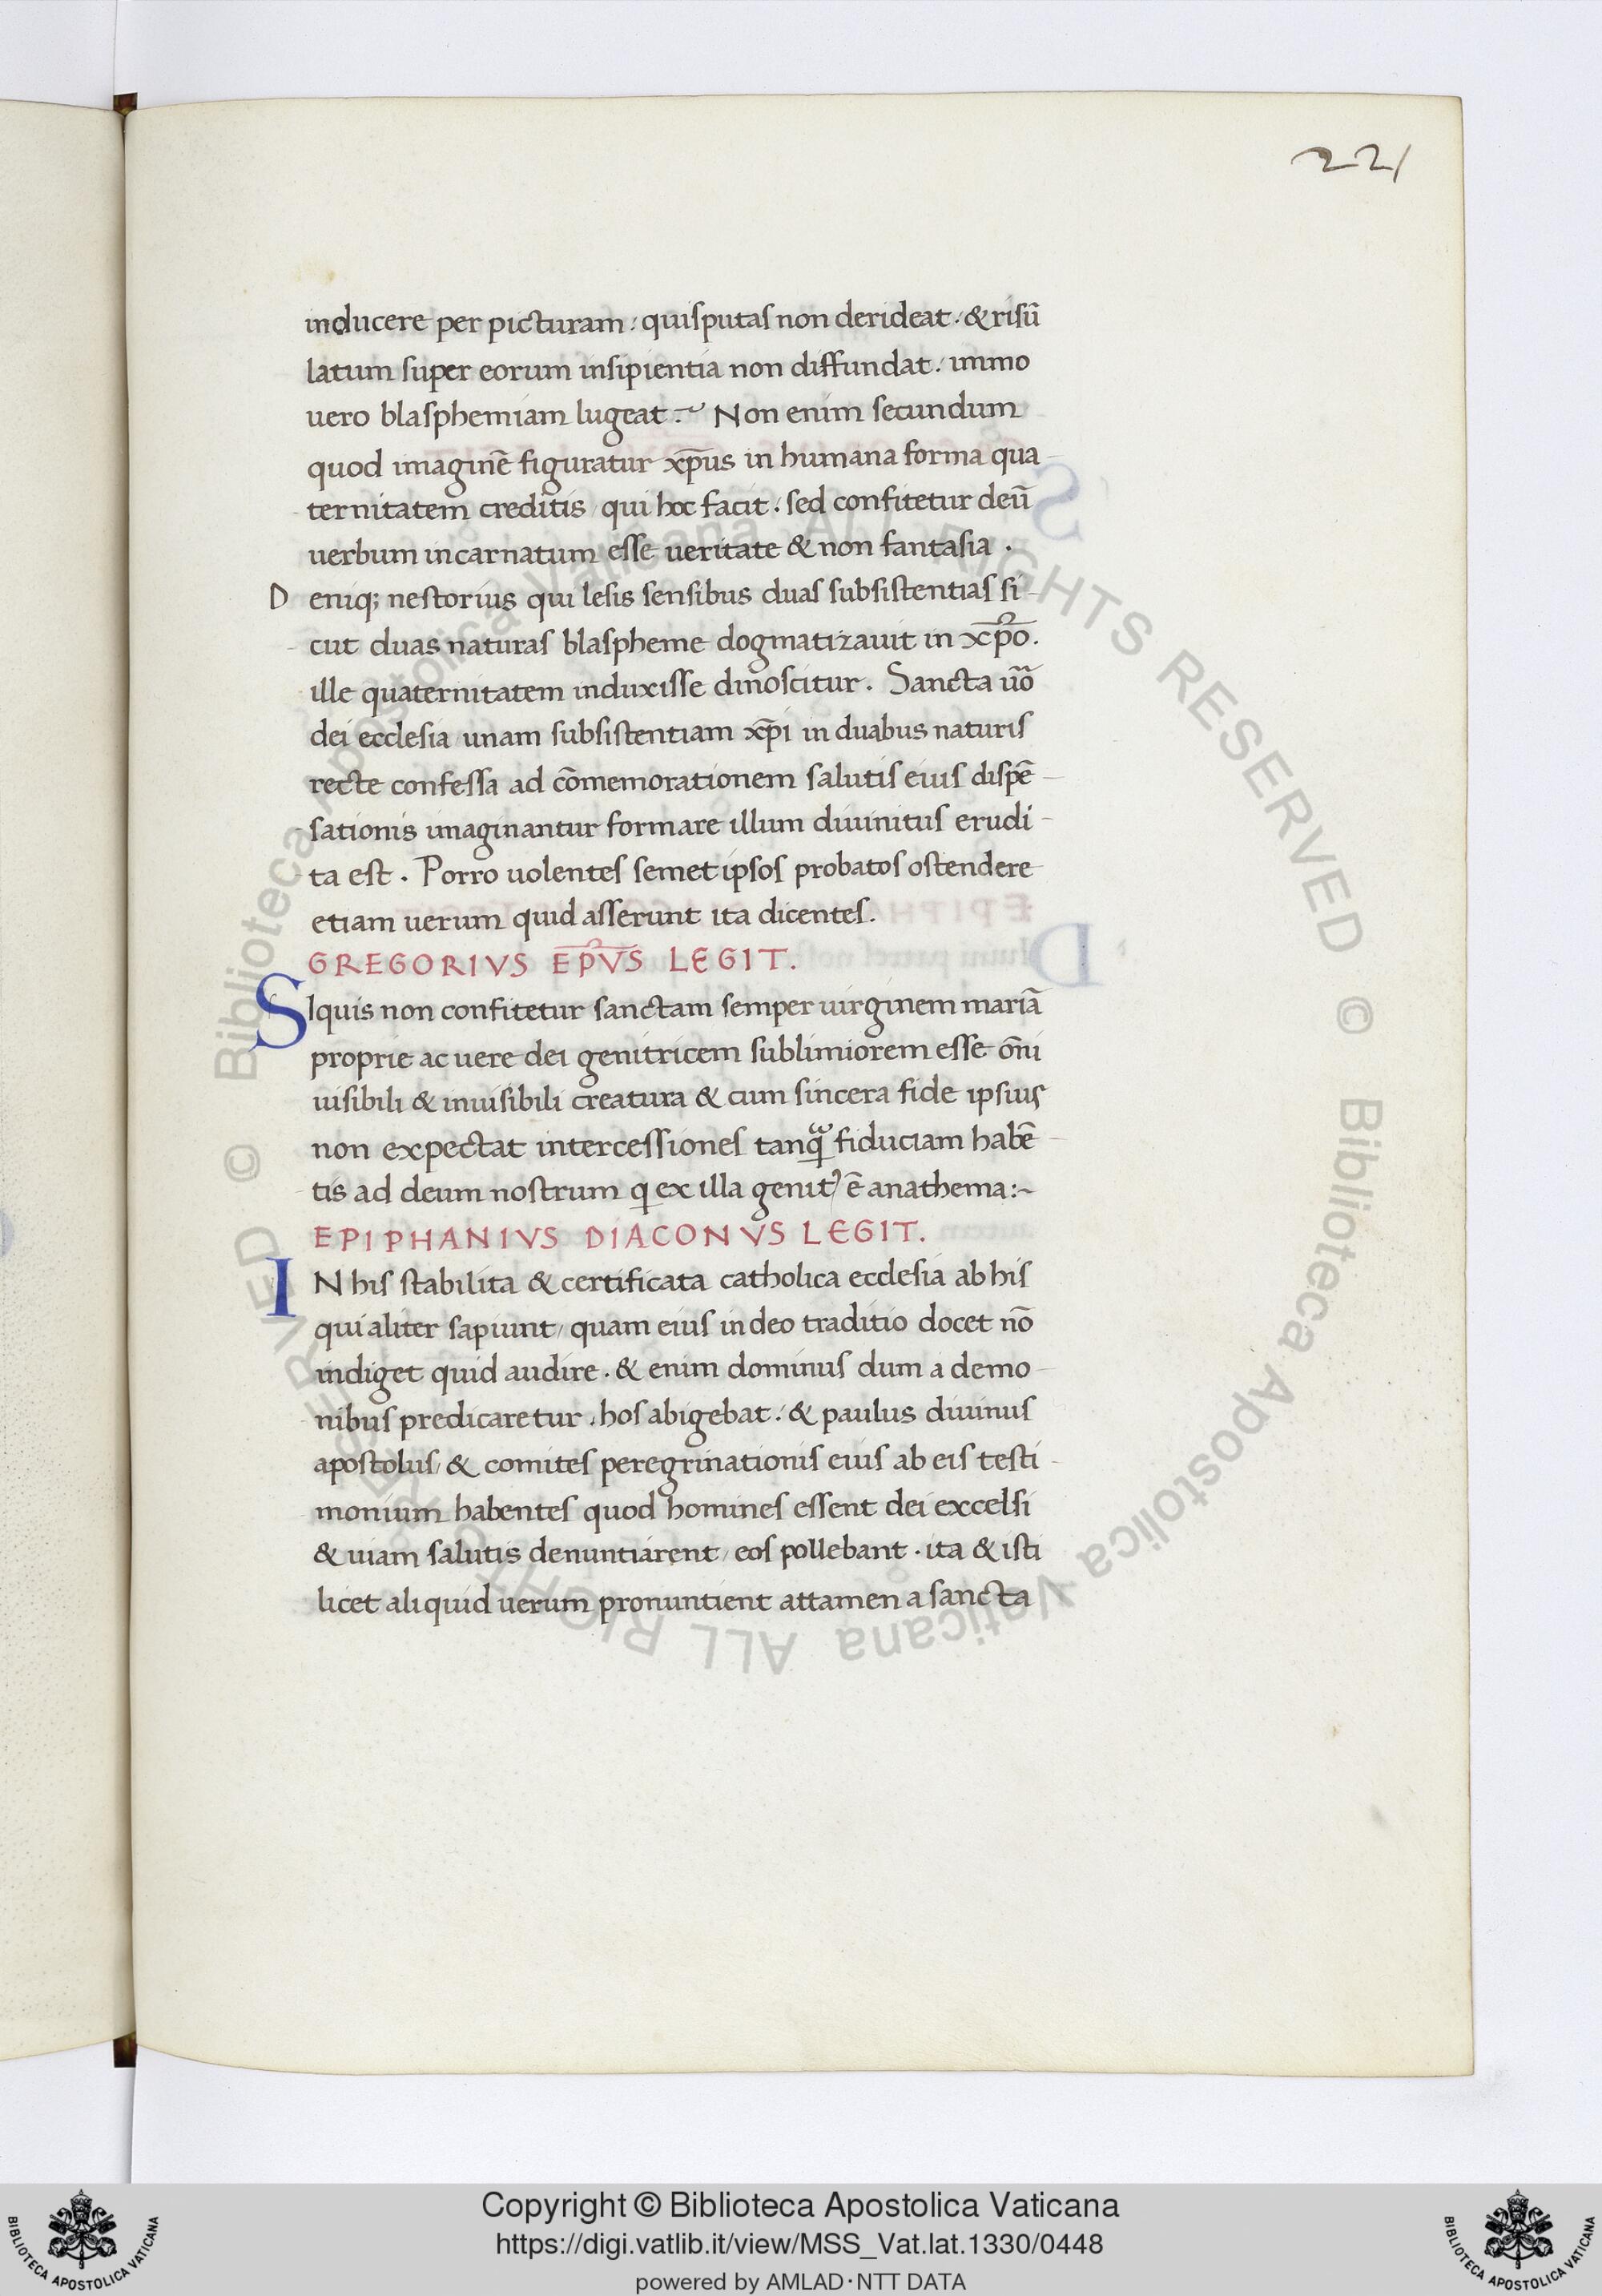 221
inducere per picturam: quisputas non derideat. & risū
latum super eorum insipientia non diffundat: immo
uero blasphemiam lugeat:~ Non enim secundum
quod imaginē figuratur xp̄us in humana forma qua
ternitatem creditis qui hoc facit. sed confitetur deū
uerbum incarnatum esse ueritate & non fantasia.
Deniq; nestorius qui lesis sensibus duas subsistentias si
cut duas naturas blaspheme dogmatizauit in xp̄o.
ille quaternitatem induxisse dinoscitur. Sancta ūo
dei ecclesia unam subsistentiam xp̄i in duabus naturis
recte confessa ad cōmemorationem salutis eius dispē
sationis imaginantur formare illum diuinitus erudi
ta est. Porro uolentes semet ipsos probatos ostendere
etiam uerum quid asserunt ita dicentes.
GREGORIVS EP̄VS LEGIT.
SIquis non confitetur sanctam semper uirginem mariā
proprie ac uere dei genitricem sublimiorem esse om̄i
uisibili & inuisibili creatura & cum sincera fide ipsius
non expectat intercessiones tanq̄ fiduciam habē
tis ad deum nostrum q ex illa genit' ē anathema:~
EPIPHANIVS DIACONVS LEGIT.
IN his stabilita & certificata catholica ecclesia ab his
qui aliter sapiunt, quam eius in deo traditio docet nō
indiget quid audire. & enim dominus dum a demo
nibus predicaretur, hos abigebat: & paulus diuinus
apostolus, & comites peregrinationis eius ab eis testi
monium habentes quod homines essent dei excelsi
& uiam salutis denuntiarent, eos pollebant. ita & isti
licet aliquid uerum pronuntient attamen a sancta
© Biblioteca Apostolica Vaticana ALL RIGHTS RESERVED © Biblioteca Apostolica Vaticana ALL RIGHTS RESERVED
Copyright © Biblioteca Apostolica Vaticana
https://digi.vatlib.it/view/MSS_Vat.lat.1330/0448
powered by AMLAD·NTT DATA
BIBLIOTECA APOSTOLICA VATICANA
BIBLIOTECA APOSTOLICA VATICANA